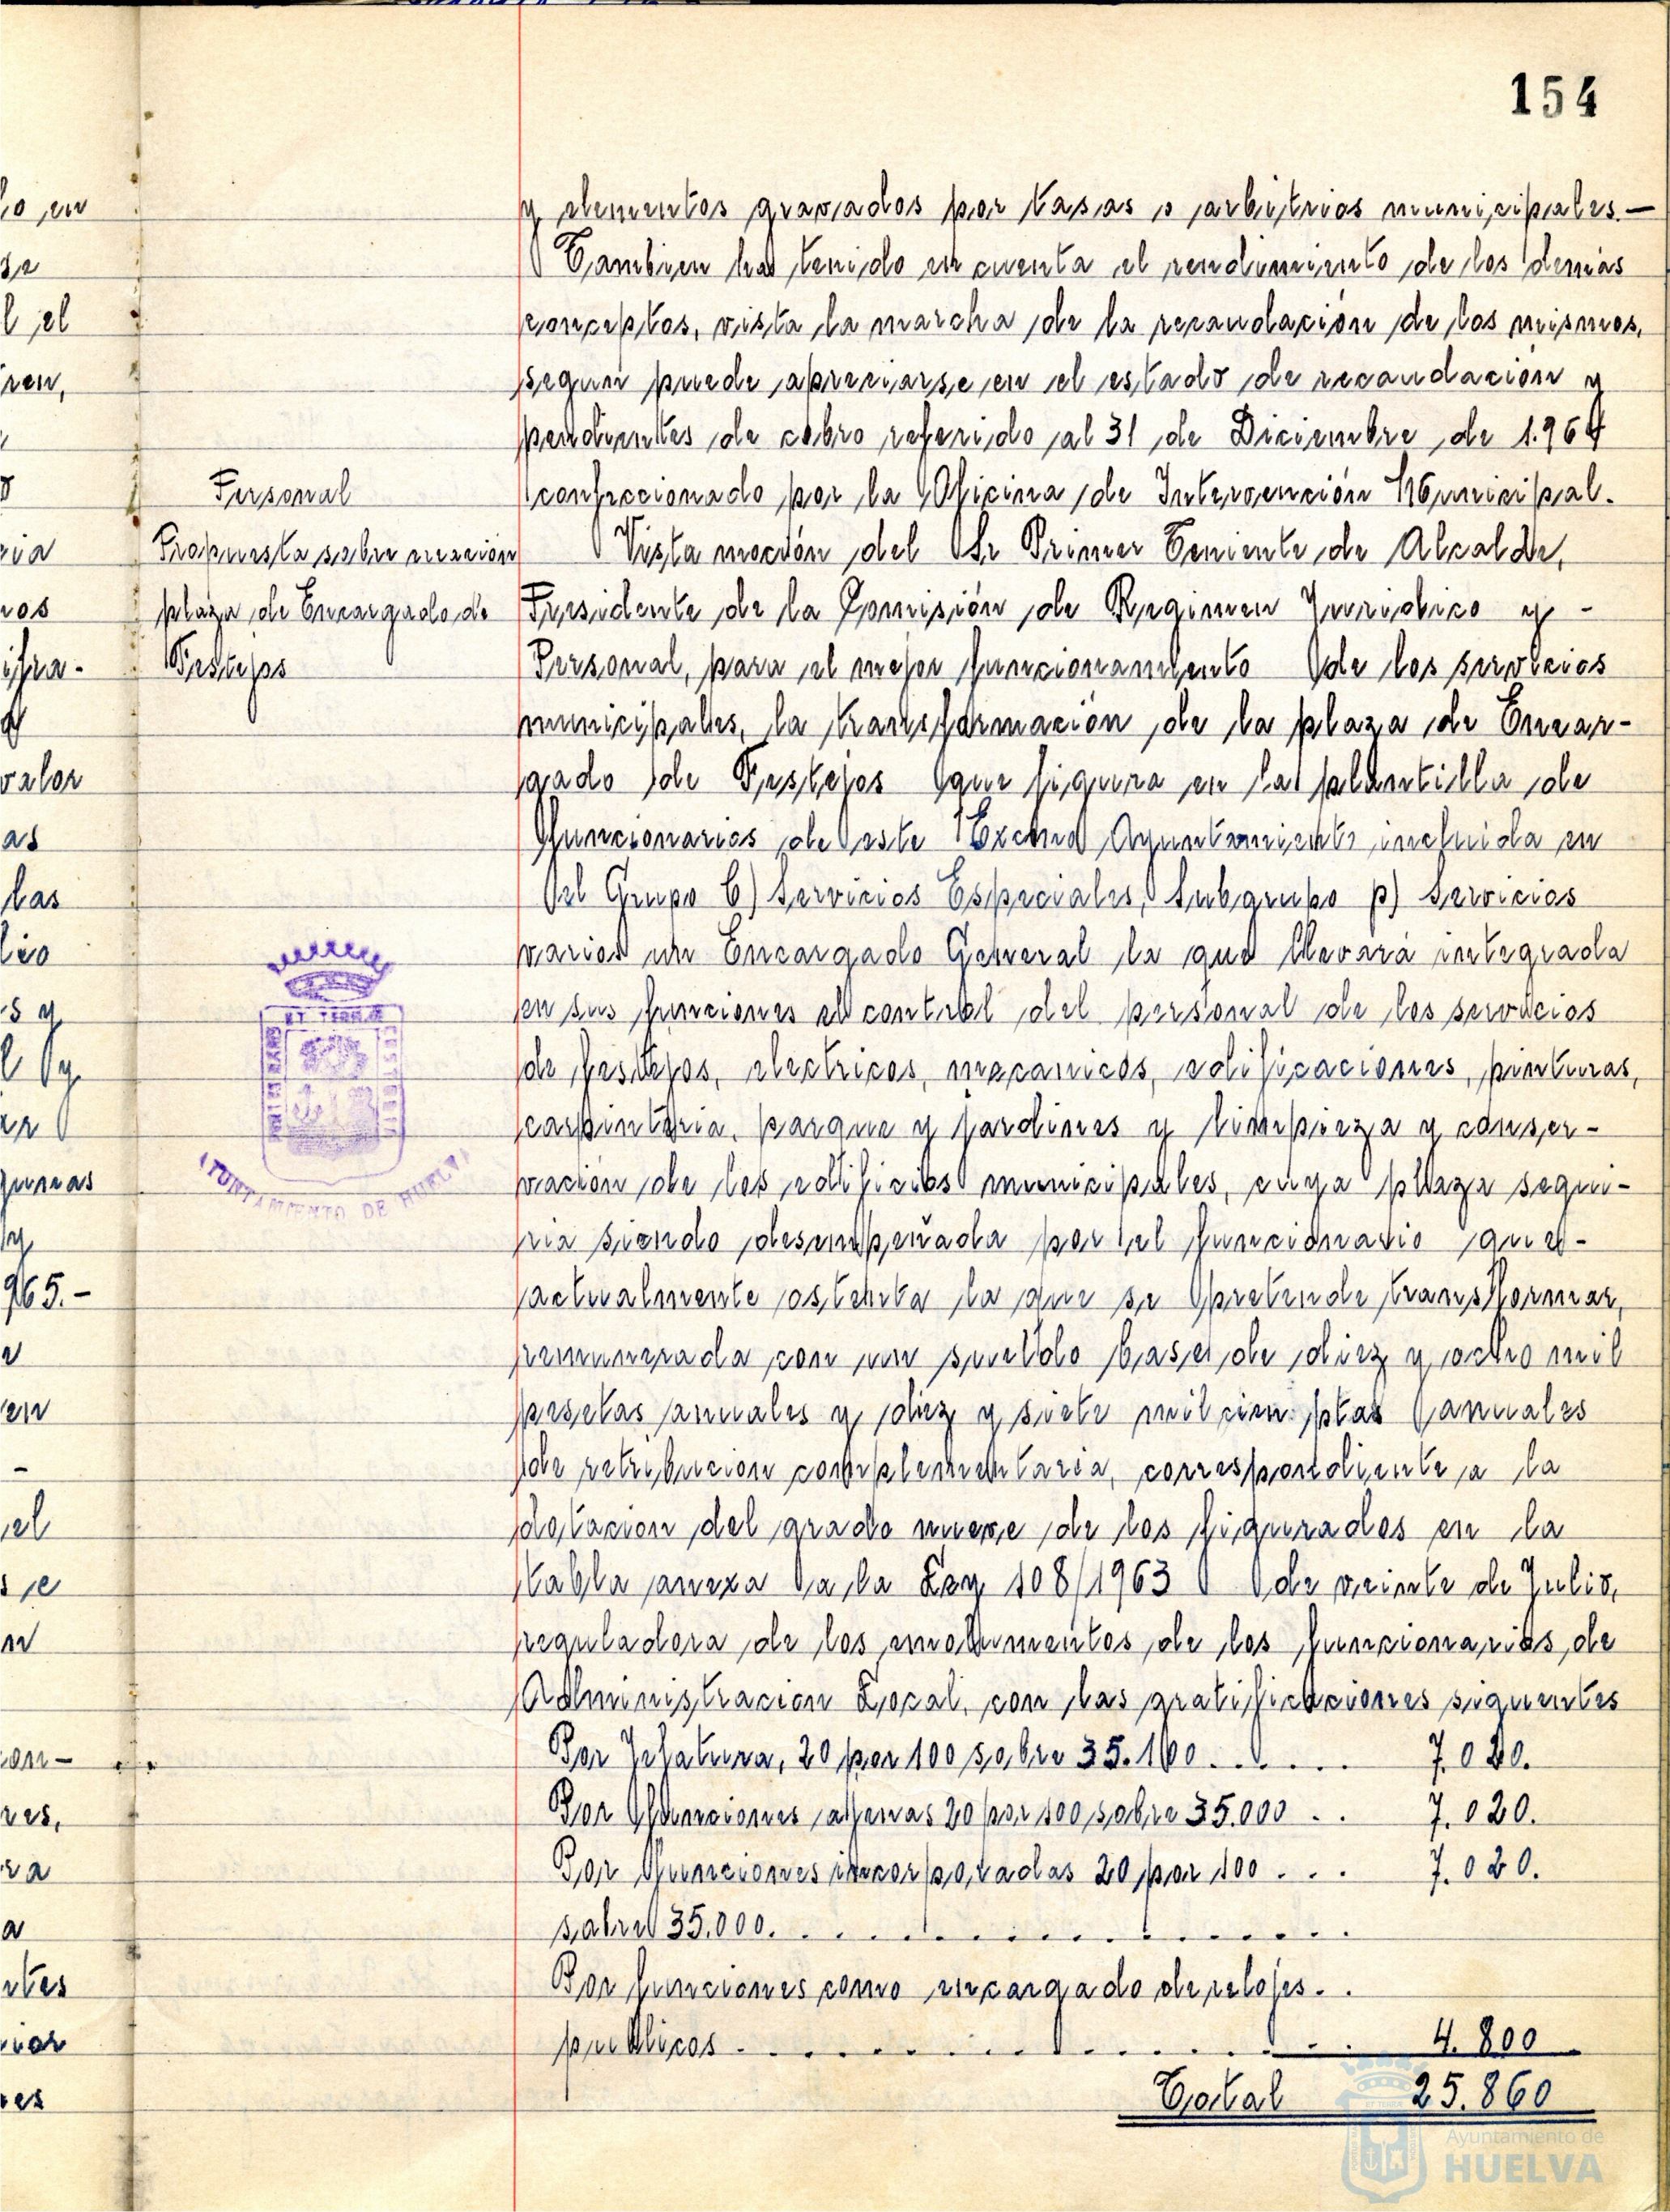 154
y elementos gravados por tasas o arbitrios municipales.—
Tambien ha tenido en cuenta el rendimiento de los demás
conceptos, vista la marcha de la recaudación de los mismos,
segun puede apreciarse en el estado de recaudación y
pendientes de cobro referido al 31 de Diciembre de 1.964
confeccionado por la Oficina de Intervención Municipal.
Personal
Propuesta sobre creación
plaza de Encargado de
Festejos
Vista moción del Sr Primer Teniente de Alcalde,
Presidente de la Comisión de Regimen Juridico y -
Personal, para el mejor funcionamiento de los servicios
municipales, la transformación de la plaza de Encar-
gado de Festejos que figura en la plantilla de
funcionarios de este Excmo Ayuntamiento incluida en
el Grupo C) Servicios Especiales, Subgrupo p) Servicios
varios un Encargado General la que llevará integrada
en sus funciones el control del personal de los servicios
de festejos, electricos, mecanicos, edificaciones, pinturas,
carpinteria, parque y jardines y limpieza y conser-
vación de los edificios municipales, cuya plaza segui-
ria siendo desempeñada por el funcionario que -
actualmente ostenta la que se pretende transformar,
remunerada con un sueldo base de diez y ocho mil
pesetas anuales y diez y siete mil cien ptas anuales
de retribucion complementaria, correspondiente a la
dotacion del grado nueve de los figurados en la
tabla anexa a la Ley 108/1963 de veinte de Julio,
reguladora de los emolumentos de los funcionarios de
Administracion Local, con las gratificaciones siguentes
Por Jefatura, 20 por 100 sobre 35.100 . . . . . . 7.020.
Por funciones ajenas 20 por 100 sobre 35.000 . . 7.020.
Por funciones incorporadas 20 por 100 . . . 7.020.
sobre 35.000. . . . . . . . . . . . . . . . .
Por funciones como encargado de relojes . .
publicos . . . . . . . . . . . . . . . . 4.800
Total 25.860
ET TERRÆ
AYUNTAMIENTO DE HUELVA
Ayuntamiento de
HUELVA
lo en
se
l el
ren,
ria
ros
ifra-
valor
as
las
lio
s y
gunas
965.-
en
el
se
on-
res,
ra
a
ntes